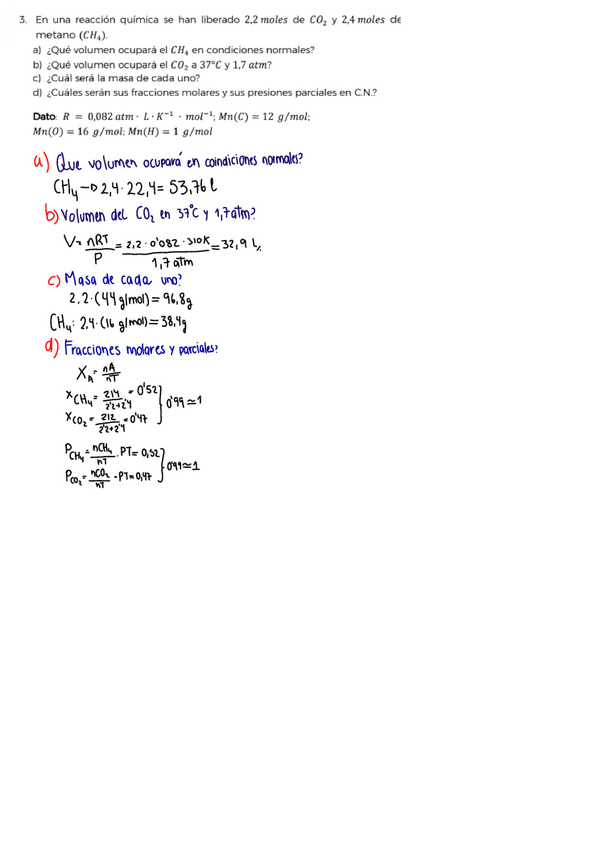 3. En una reacción química se han liberado 2,2 moles de CO₂ y 2,4 moles de
metano (CH₄).
a) ¿Qué volumen ocupará el CH₄ en condiciones normales?
b) ¿Qué volumen ocupará el CO₂ a 37°C y 1,7 atm?
c) ¿Cuál será la masa de cada uno?
d) ¿Cuáles serán sus fracciones molares y sus presiones parciales en C.N.?
Dato: R = 0,082 atm · L · K⁻¹ · mol⁻¹; Mn(C) = 12 g/mol;
Mn(O) = 16 g/mol; Mn(H) = 1 g/mol
a) Que volumen ocupará en coindiciones normales?
CH₄ → 2,4 · 22,4 = 53,76 l
b) Volumen del CO₂ en 37°C y 1,7 atm?
V = nRT / P = 2,2 · 0'082 · 310K / 1,7 atm = 32,9 L
c) Masa de cada uno?
2.2 · (44 g/mol) = 96,8g
CH₄: 2,4 · (16 g/mol) = 38,4g
d) Fracciones molares y parciales?
X_A = nA / nT
X CH₄ = 2'4 / 2'2+2'4 = 0'52
X CO₂ = 2'2 / 2'2+2'4 = 0'47 } 0'99 ≃ 1
P CH₄ = nCH₄ / nT · PT = 0,52
P CO₂ = nCO₂ / nT · PT = 0,47 } 0'99 ≃ 1